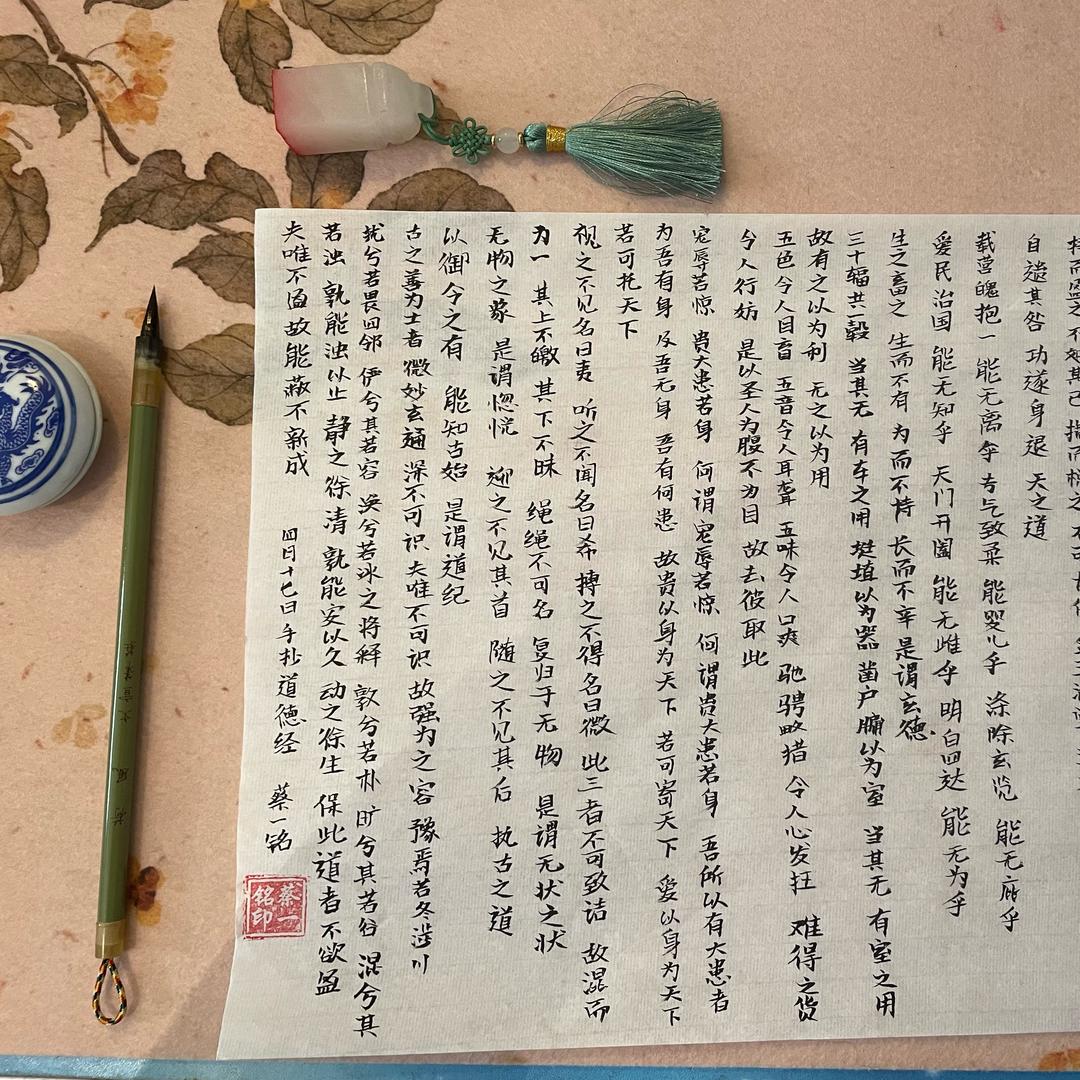 自遗其咎 功遂身退 天之道
载营魄抱一 能无离乎 专气致柔 能婴儿乎 涤除玄览 能无疵乎
爱民治国 能无知乎 天门开阖 能无雌乎 明白四达 能无为乎
生之畜之 生而不有 为而不恃 长而不宰 是谓玄德
三十辐共一毂 当其无 有车之用 埏埴以为器 凿户牖以为室 当其无 有室之用
故有之以为利 无之以为用
五色令人目盲 五音令人耳聋 五味令人口爽 驰骋畋猎 令人心发狂 难得之货
令人行妨 是以圣人为腹不为目 故去彼取此
宠辱若惊 贵大患若身 何谓宠辱若惊 何谓贵大患若身 吾所以有大患者
为吾有身 及吾无身 吾有何患 故贵以身为天下 若可寄天下 爱以身为天下
若可托天下
视之不见名曰夷 听之不闻名曰希 搏之不得名曰微 此三者不可致诘 故混而
为一 其上不皦 其下不昧 绳绳不可名 复归于无物 是谓无状之状
无物之象 是谓惚恍 迎之不见其首 随之不见其后 执古之道
以御今之有 能知古始 是谓道纪
古之善为士者 微妙玄通 深不可识 夫唯不可识 故强为之容 豫焉若冬涉川
犹兮若畏四邻 俨兮其若容 涣兮若冰之将释 敦兮若朴 旷兮其若谷 混兮其
若浊 孰能浊以止 静之徐清 孰能安以久 动之徐生 保此道者不欲盈
夫唯不盈 故能蔽不新成
四月十七日手抄道德经 蔡一铭
蔡一铭印